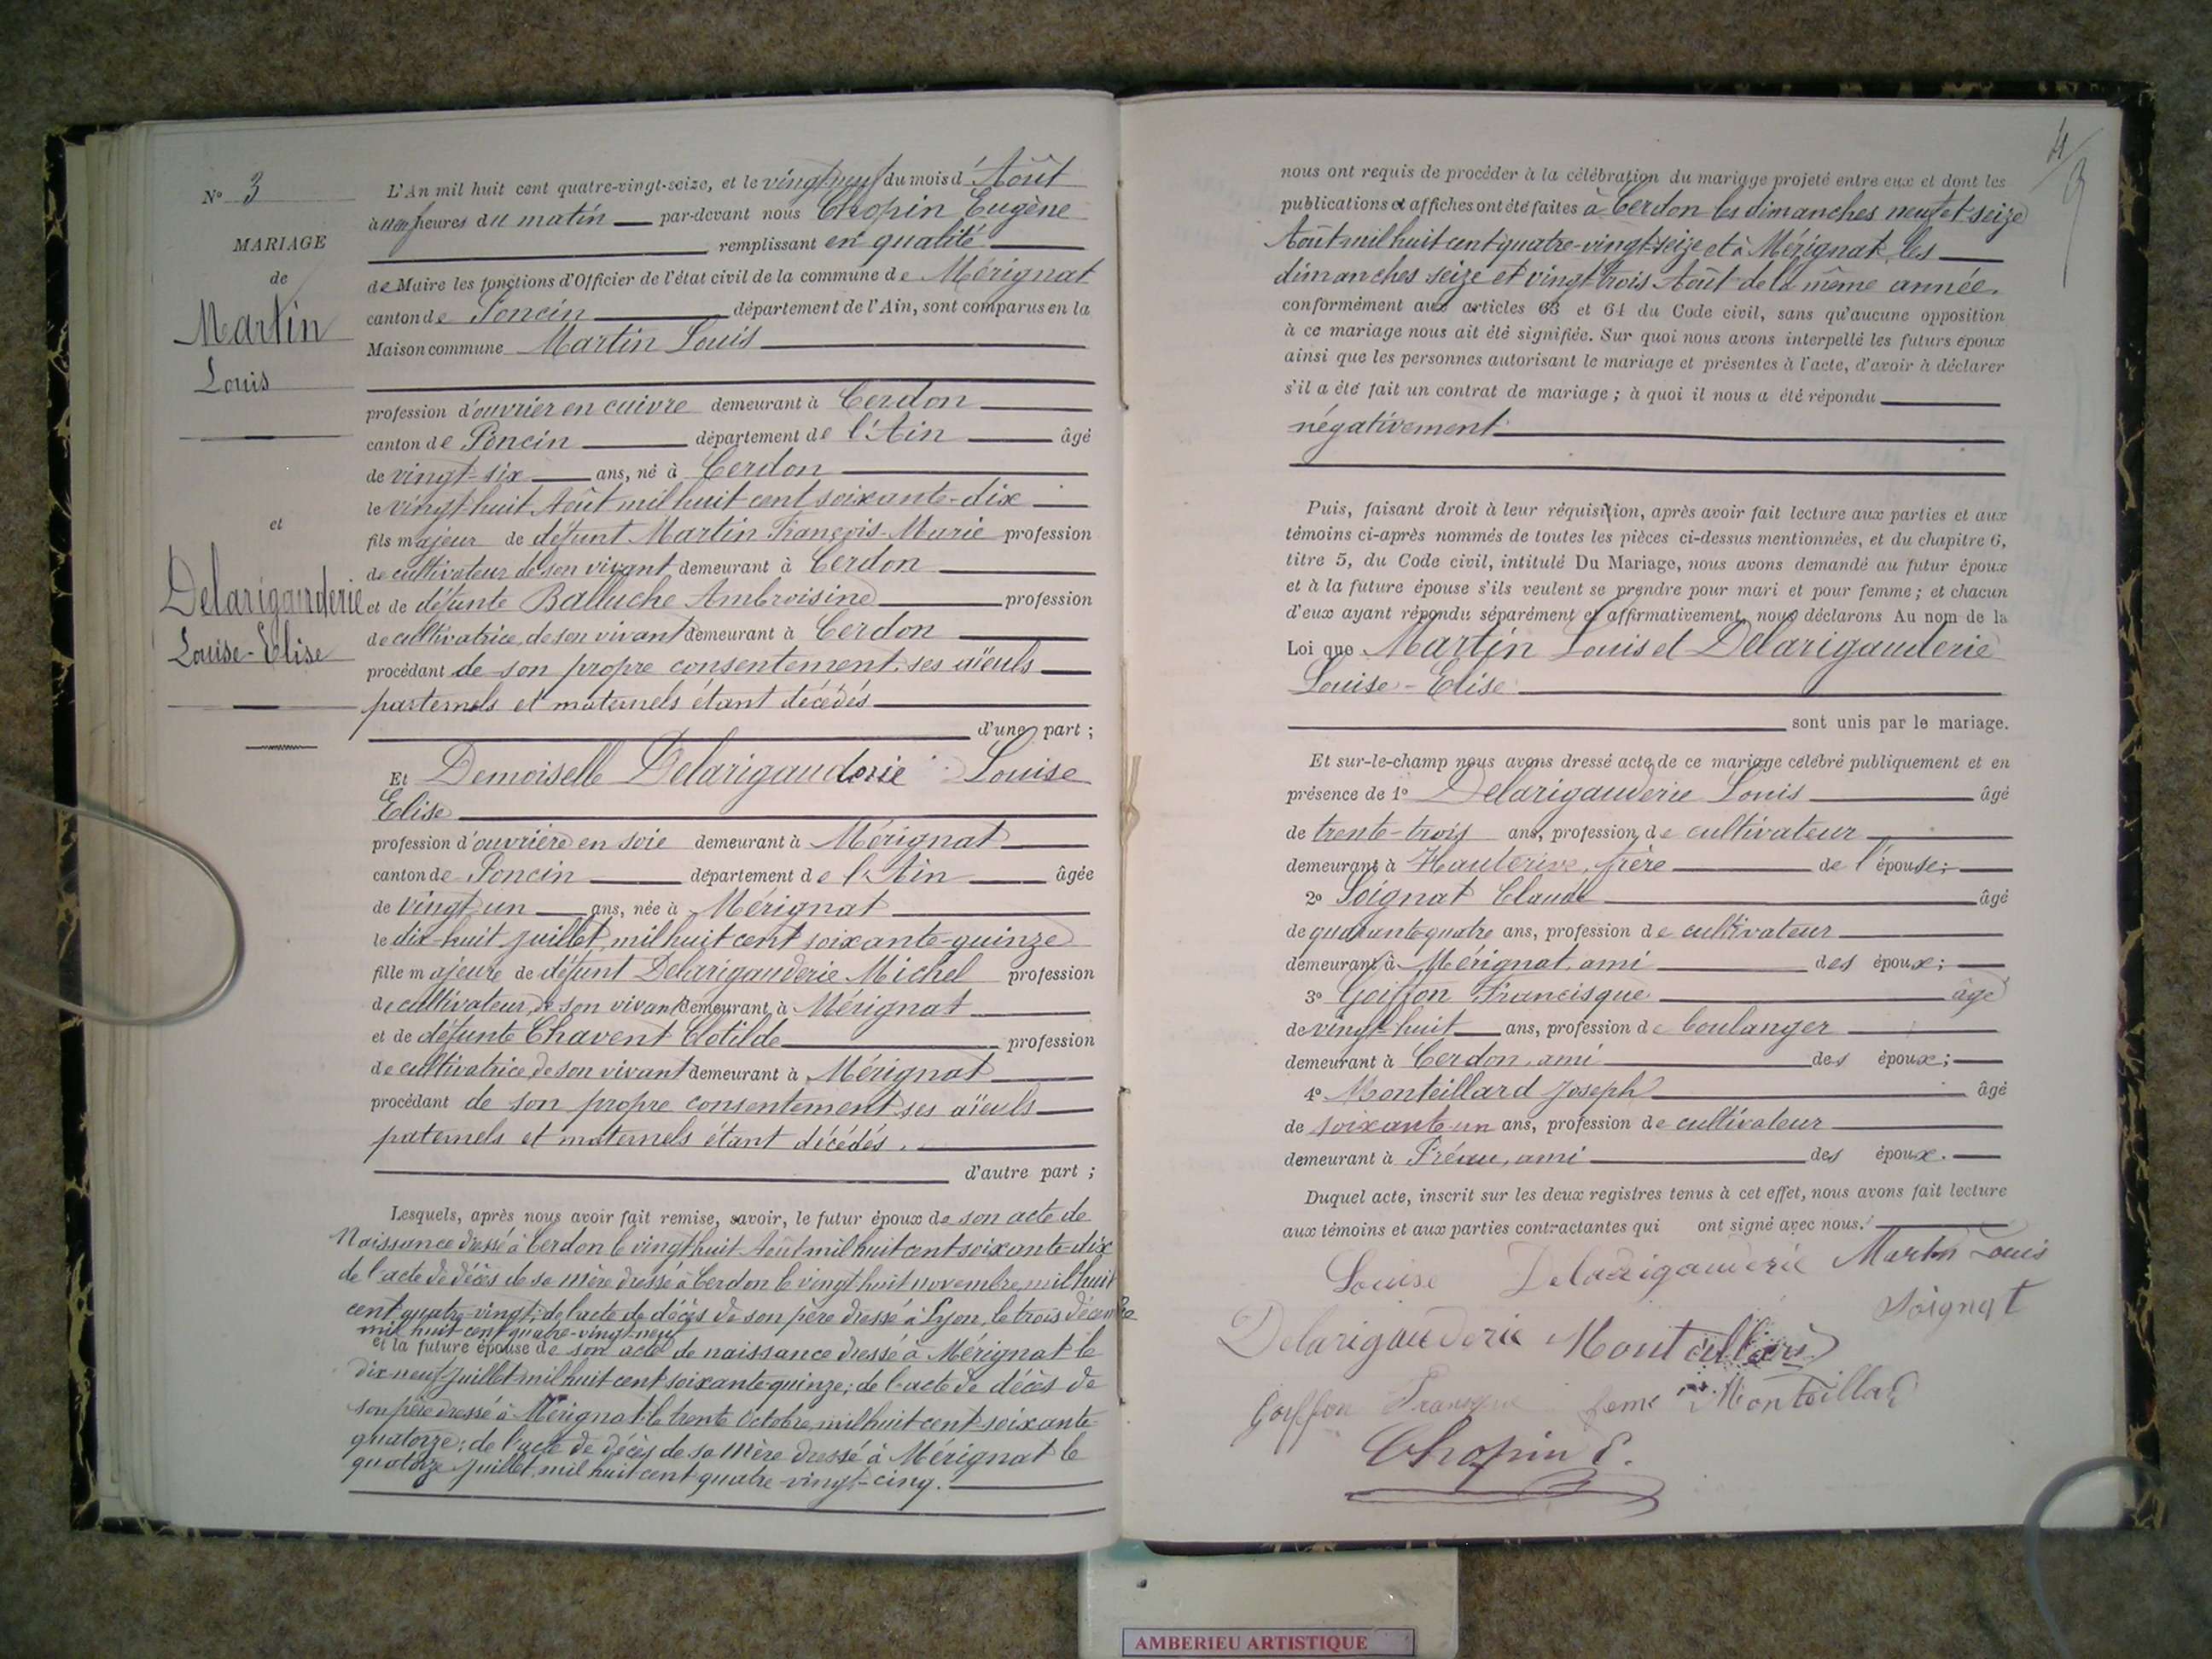 N° 3
MARIAGE
de
Martin
Louis
et
Delarigauderie
Louise-Elise
L'An mil huit cent quatre-vingt-seize, et le vingt neuf du mois d'Août
à heures du matin par-devant nous Chopin Eugène
remplissant en qualité
de Maire les fonctions d'Officier de l'état civil de la commune de Mérignat
canton de Poncin département de l'Ain, sont comparus en la
Maison commune Martin Louis
profession d'ouvrier en cuivre demeurant à Cerdon
canton de Poncin département de l'Ain âgé
de vingt-six ans, né à Cerdon
le vingt-huit Août mil huit cent soixante-dix
fils majeur de défunt Martin François-Marie profession
de cultivateur de son vivant demeurant à Cerdon
et de défunte Balluche Ambroisine profession
de cultivatrice, de son vivant demeurant à Cerdon
procédant de son propre consentement, ses aïeuls
paternels et maternels étant décédés
d'une part ;
Et Demoiselle Delarigauderie Louise
Elise
profession d'ouvrière en soie demeurant à Mérignat
canton de Poncin département de l'Ain âgée
de vingt un ans, née à Mérignat
le dix-huit juillet mil huit cent soixante-quinze
fille majeure de défunt Delarigauderie Michel profession
de cultivateur, de son vivant demeurant à Mérignat
et de défunte Chavent Clotilde profession
de cultivatrice, de son vivant demeurant à Mérignat
procédant de son propre consentement ses aïeuls
paternels et maternels étant décédés.
d'autre part ;
Lesquels, après nous avoir fait remise, savoir, le futur époux de son acte de
Naissance dressé à Cerdon le vingt huit Août mil huit cent soixante-dix
de l'acte de décès de sa mère dressé à Cerdon le vingt huit novembre mil huit
cent quatre-vingt; de l'acte de décès de son père dressé à Lyon, le trois décembre
mil huit cent quatre-vingt-neuf
et la future épouse de son acte de naissance dressé à Mérignat le
dix neuf juillet mil huit cent soixante-quinze; de l'acte de décès de
son père dressé à Mérignat le trente Octobre mil huit cent soixante-
quatorze; de l'acte de décès de sa mère dressé à Mérignat le
quatorze juillet mil huit cent quatre-vingt-cinq.
nous ont requis de procéder à la célébration du mariage projeté entre eux et dont les
publications et affiches ont été faites à Cerdon les dimanches neuf et seize
Août mil huit cent quatre-vingt-seize et à Mérignat, les
dimanches seize et vingt trois Août de la même année.
conformément aux articles 63 et 64 du Code civil, sans qu'aucune opposition
à ce mariage nous ait été signifiée. Sur quoi nous avons interpellé les futurs époux
ainsi que les personnes autorisant le mariage et présentes à l'acte, d'avoir à déclarer
s'il a été fait un contrat de mariage ; à quoi il nous a été répondu
négativement
Puis, faisant droit à leur réquisition, après avoir fait lecture aux parties et aux
témoins ci-après nommés de toutes les pièces ci-dessus mentionnées, et du chapitre 6,
titre 5, du Code civil, intitulé Du Mariage, nous avons demandé au futur époux
et à la future épouse s'ils veulent se prendre pour mari et pour femme ; et chacun
d'eux ayant répondu séparément et affirmativement, nous déclarons Au nom de la
Loi que Martin Louis et Delarigauderie
Louise-Elise
sont unis par le mariage.
Et sur-le-champ nous avons dressé acte de ce mariage célébré publiquement et en
présence de 1° Delarigauderie Louis âgé
de trente-trois ans, profession de cultivateur
demeurant à Hauterive, frère de l'épouse;
2° Soignat Claude âgé
de quarante quatre ans, profession de cultivateur
demeurant à Mérignat, ami des époux;
3° Goiffon Francisque âgé
de vingt-huit ans, profession de boulanger
demeurant à Cerdon, ami des époux;
4° Monteillard Joseph âgé
de soixante-un ans, profession de cultivateur
demeurant à Préau, ami des époux.
Duquel acte, inscrit sur les deux registres tenus à cet effet, nous avons fait lecture
aux témoins et aux parties contractantes qui ont signé avec nous.
Louise Delarigauderie Martin Louis
Soignat
Delarigauderie
Goiffon Monteillard
Chopin E.
AMBERIEU ARTISTIQUE